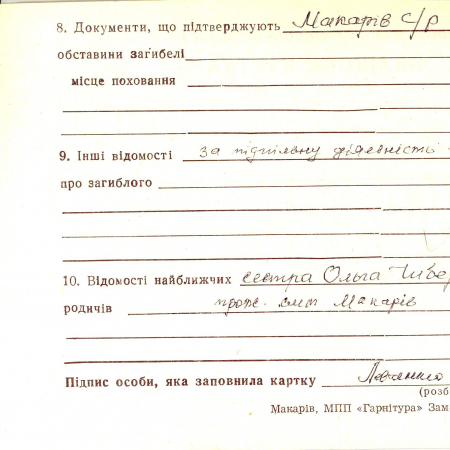 8. Документи, що підтверджують Макарів с/р
обставини загибелі
місце поховання
9. Інші відомості за підпільну діяльність
про загиблого
10. Відомості найближчих сестра Ольга
родичів прож. смт Макарів
Підпис особи, яка заповнила картку
(розб
Макарів, МПП «Гарнітура» Зам